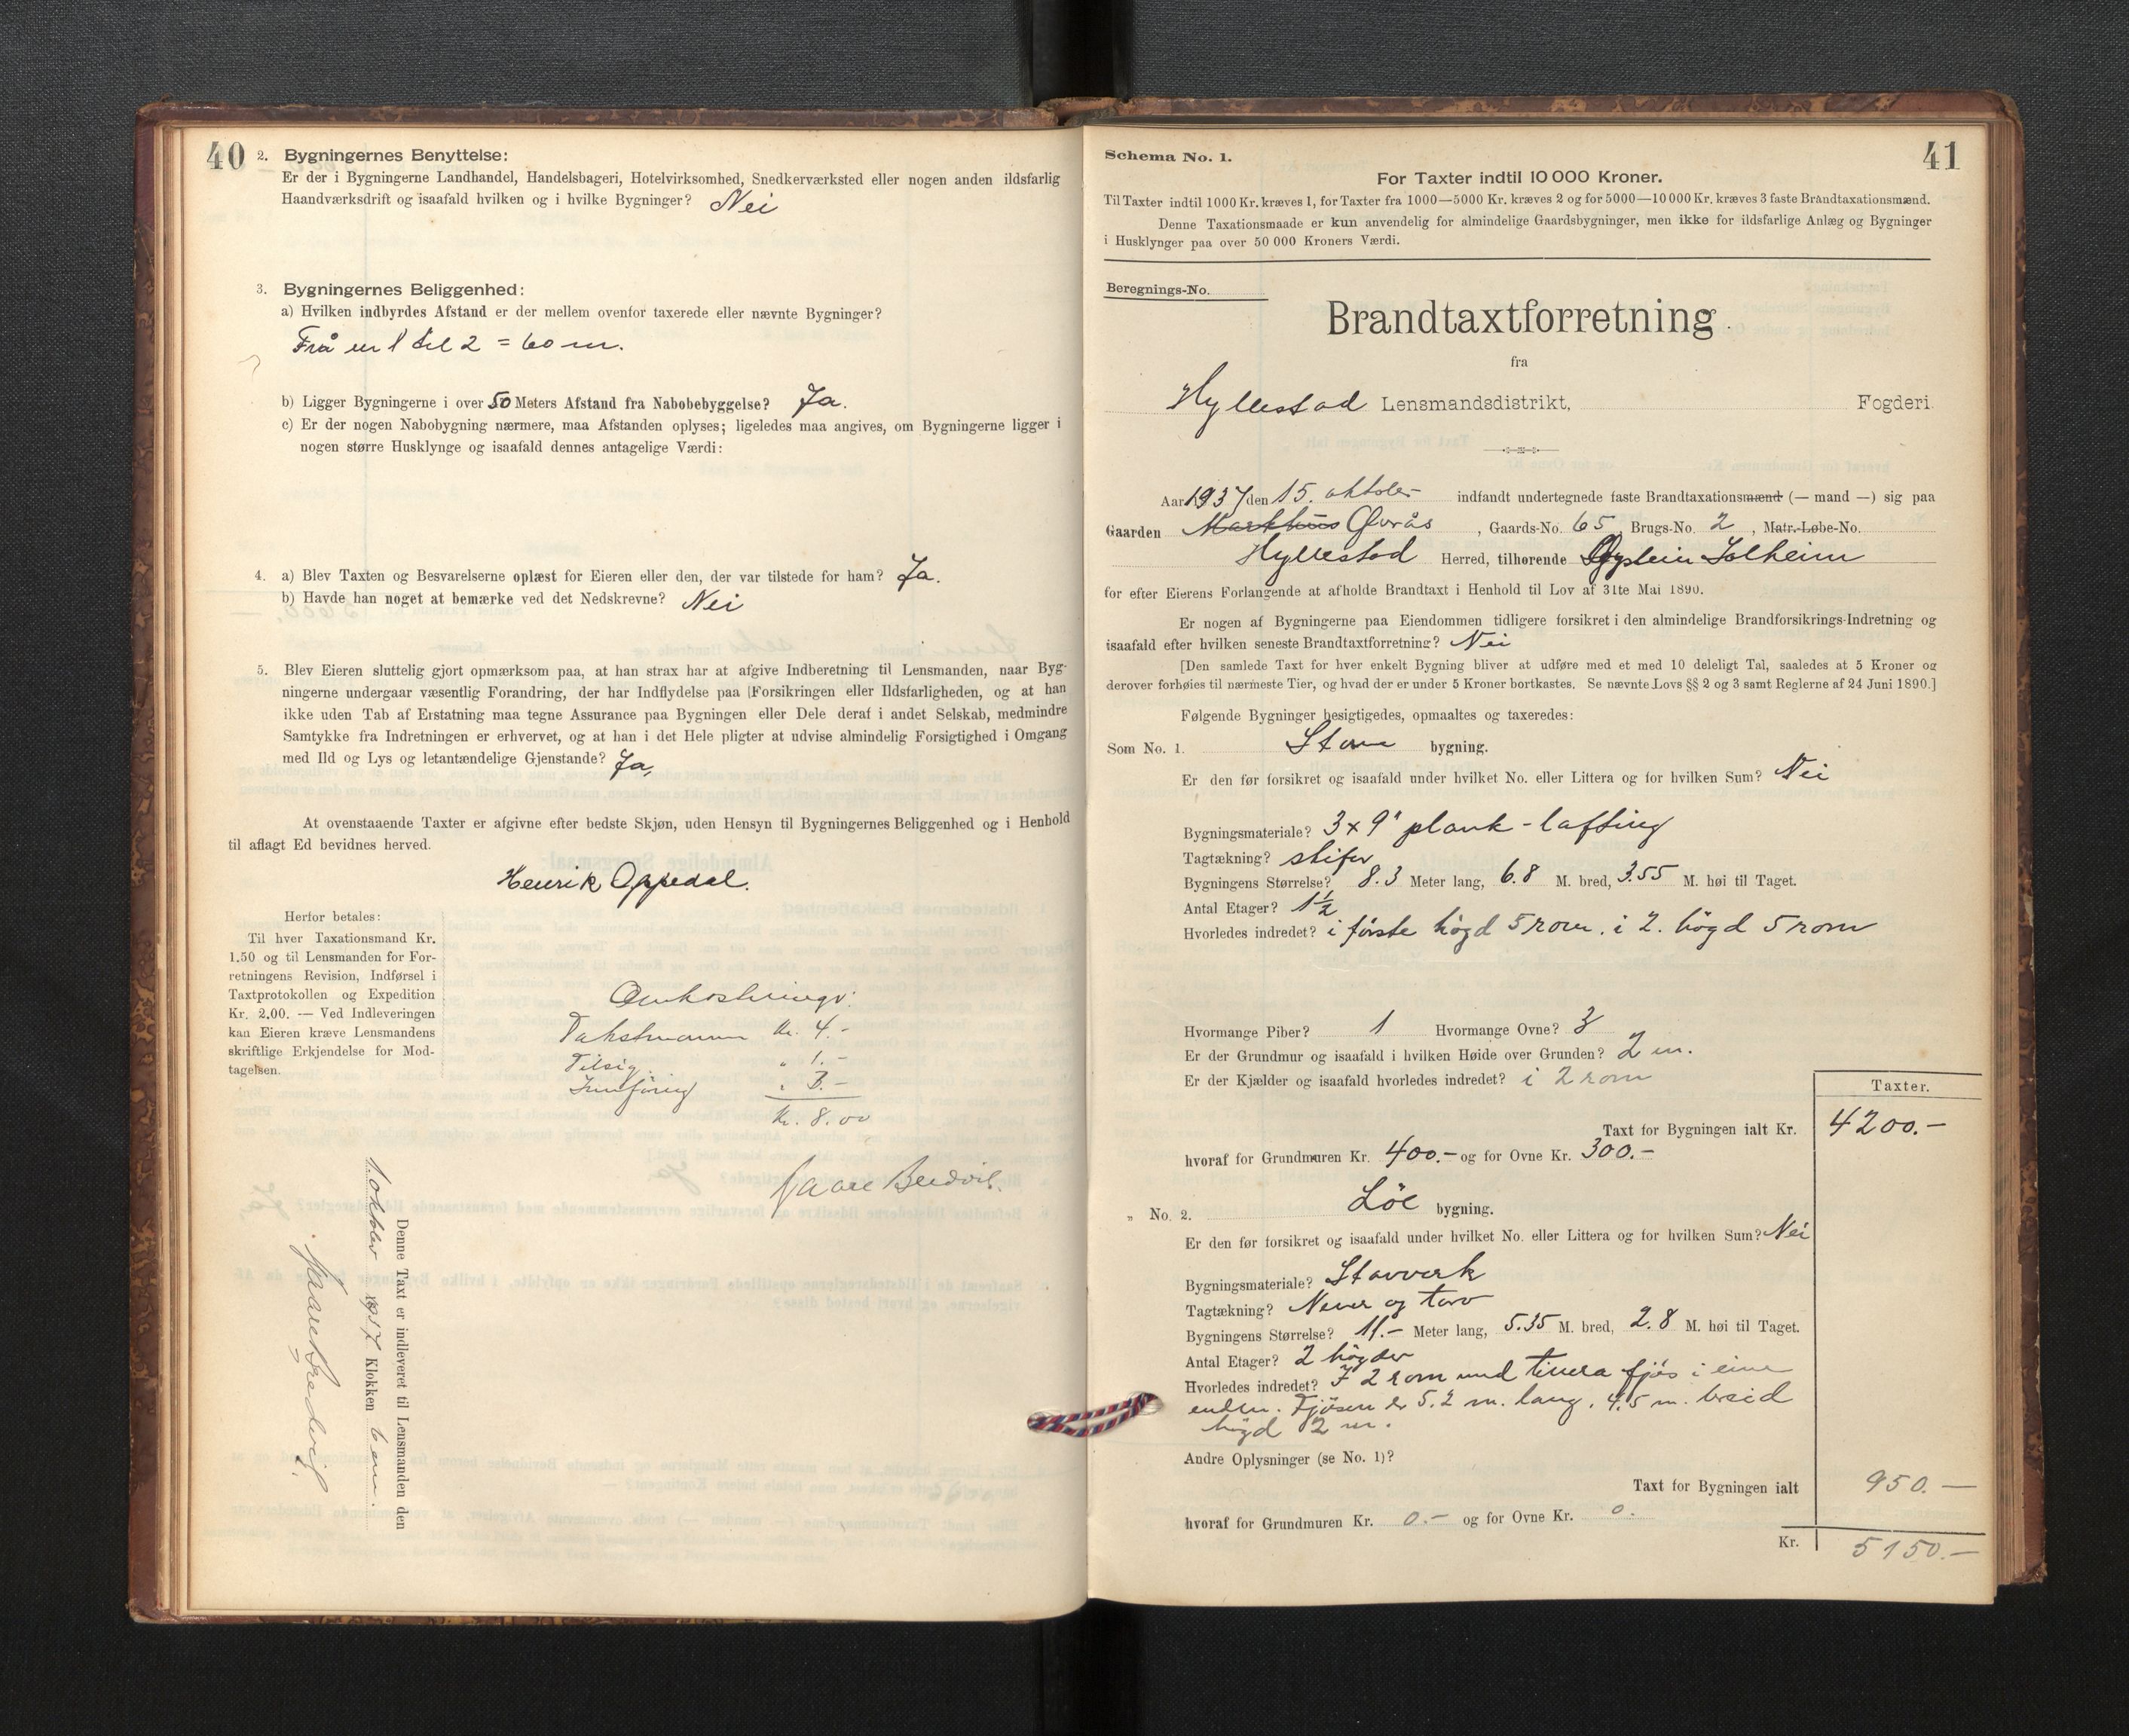 40
2. Bygningernes Benyttelse:
Er der i Bygningerne Landhandel, Handelsbageri, Hotelvirksomhed, Snedkerværksted eller nogen anden ildsfarlig
Haandværksdrift og isaafald hvilken og i hvilke Bygninger? Nei
3. Bygningernes Beliggenhed:
a) Hvilken indbyrdes Afstand er der mellem ovenfor taxerede eller nævnte Bygninger?
Frå nr 1 til 2 = 60 m.
b) Ligger Bygningerne i over 50 Meters Afstand fra Nabobebyggelse? Ja.
c) Er der nogen Nabobygning nærmere, maa Afstanden oplyses; ligeledes maa angives, om Bygningerne ligger i
nogen større Husklynge og isaafald dennes antagelige Værdi:
4. a) Blev Taxten og Besvarelserne oplæst for Eieren eller den, der var tilstede for ham? Ja.
b) Havde han noget at bemærke ved det Nedskrevne? Nei
5. Blev Eieren sluttelig gjort opmærksom paa, at han strax har at afgive Indberetning til Lensmanden, naar Byg-
ningerne undergaar væsentlig Forandring, der har Indflydelse paa Forsikringen eller Ildsfarligheden, og at han
ikke uden Tab af Erstatning maa tegne Assurance paa Bygningen eller Dele deraf i andet Selskab, medmindre
Samtykke fra Indretningen er erhvervet, og at han i det Hele pligter at udvise almindelig Forsigtighed i Omgang
med Ild og Lys og letantændelige Gjenstande? Ja,
At ovenstaaende Taxter er afgivne efter bedste Skjøn, uden Hensyn til Bygningernes Beliggenhed og i Henhold
til aflagt Ed bevidnes herved.
Henrik Oppedal.
Herfor betales:
Til hver Taxationsmand Kr.
1.50 og til Lensmanden for For-
retningens Revision, Indførsel i
Taxtprotokollen og Expedition
Kr. 2.00. — Ved Indleveringen
kan Eieren kræve Lensmandens
skriftlige Erkjendelse for Mod-
tagelsen.
Omkostningr:
Takstmann Kr. 4.-
Tilsig. " 1.-
Innføring " 3.-
Kr. 8.00
Kaare Bredvik.
Denne Taxt er indleveret til Lensmanden den
1. oktober 1937 Klokken 6 em.
Kaare Bredvik.
41
Schema No. 1.
For Taxter indtil 10 000 Kroner.
Til Taxter indtil 1000 Kr. kræves 1, for Taxter fra 1000—5000 Kr. kræves 2 og for 5000—10 000 Kr. kræves 3 faste Brandtaxationsmænd.
Denne Taxationsmaade er kun anvendelig for almindelige Gaardsbygninger, men ikke for ildsfarlige Anlæg og Bygninger
i Husklynger paa over 50 000 Kroners Værdi.
Beregnings-No.
Brandtaxtforretning.
fra
Hyllestad Lensmandsdistrikt, Fogderi.
Aar 1937 den 15. oktober indfandt undertegnede faste Brandtaxationsmænd (— mand —) sig paa
Gaarden Markhus Gvrås, Gaards-No. 65, Brugs-No. 2, Matr.-Løbe-No.
Hyllestad Herred, tilhørende Øystein Solheim
for efter Eierens Forlangende at afholde Brandtaxt i Henhold til Lov af 31te Mai 1890.
Er nogen af Bygningerne paa Eiendommen tidligere forsikret i den almindelige Brandforsikrings-Indretning og
isaafald efter hvilken seneste Brandtaxtforretning? Nei
[Den samlede Taxt for hver enkelt Bygning bliver at udføre med et med 10 deleligt Tal, saaledes at 5 Kroner og
derover forhøies til nærmeste Tier, og hvad der er under 5 Kroner bortkastes. Se nævnte Lovs §§ 2 og 3 samt Reglerne af 24 Juni 1890.]
Følgende Bygninger besigtigedes, opmaaltes og taxeredes:
Som No. 1. Stove bygning.
Er den før forsikret og isaafald under hvilket No. eller Littera og for hvilken Sum? Nei
Bygningsmateriale? 3 x 9" plank - lafting
Tagtækning? skifer
Bygningens Størrelse? 8.3 Meter lang, 6.8 M. bred, 3.55 M. høi til Taget.
Antal Etager? 1½
Hvorledes indredet? i første högd 5 rom. i 2. högd 5 rom
Hvormange Piber? 1 Hvormange Ovne? 3
Er der Grundmur og isaafald i hvilken Høide over Grunden? 2 m.
Er der Kjælder og isaafald hvorledes indredet? i 2 rom
Taxter.
Taxt for Bygningen ialt Kr. 4200.-
hvoraf for Grundmuren Kr. 400.- og for Ovne Kr. 300.-
" No. 2. Löe bygning.
Er den før forsikret og isaafald under hvilket No. eller Littera og for hvilken Sum? Nei
Bygningsmateriale? Stavverk
Tagtækning? Never og torv
Bygningens Størrelse? 11.- Meter lang, 5.35 M. bred, 2.8 M. høi til Taget.
Antal Etager? 2 högder
Hvorledes indredet? I 2 rom med timra fjös i eine
enden. Fjösen er 5.2 m. lang. 4.5 m. breid
högd 2 m.
Andre Oplysninger (se No. 1)?
Taxt for Bygningen ialt 950.—
hvoraf for Grundmuren Kr. 0.- og for Ovne Kr. 0.
Kr. 5150.—